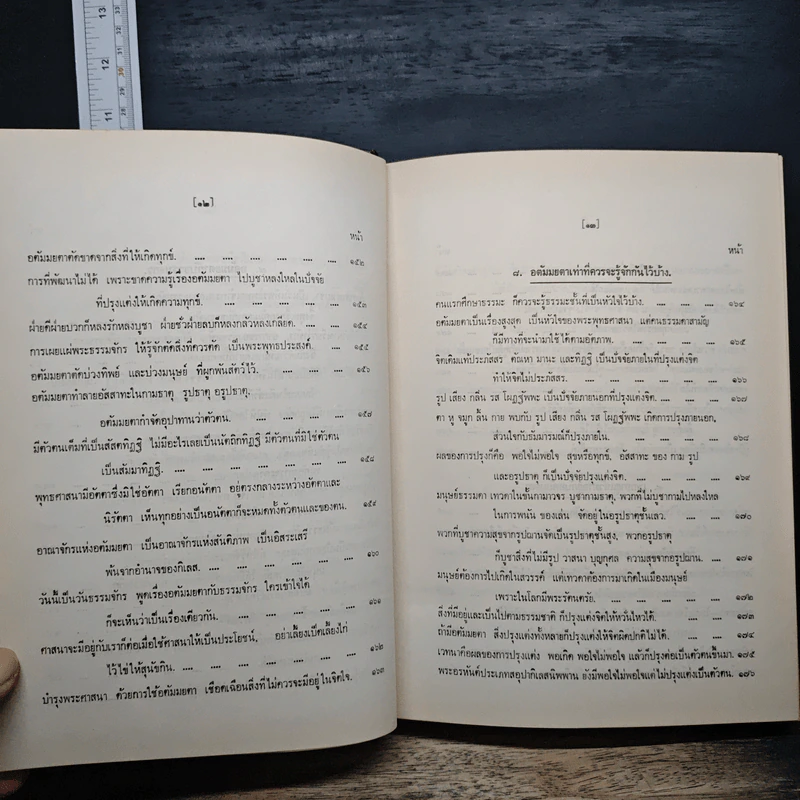 13
12
30
11
[๑๒]
หน้า
อตัมมยตาตัดขาดจากสิ่งที่ให้เกิดทุกข์. .... .... .... .... .... ๑๕๒
การที่พัฒนาไม่ได้ เพราะขาดความรู้เรื่องอตัมมยตา ไปบูชาหลงใหลในปัจจัย
ที่ปรุงแต่งให้เกิดความทุกข์. .... .... .... .... .... ๑๕๓
ฝ่ายดีฝ่ายบวกก็หลงรักหลงบูชา ฝ่ายชั่วฝ่ายลบก็หลงกลัวหลงเกลียด. .... .... ๑๕๔
การเผยแผ่พระธรรมจักร ให้รู้จักตัดสิ่งที่ควรตัด เป็นพระพุทธประสงค์. .... .... ๑๕๕
อตัมมยตาตัดบ่วงทิพย์ และบ่วงมนุษย์ ที่ผูกพันสัตว์ไว้. .... .... .... ๑๕๖
อตัมมยตาทำลายอัสสาทะในกามธาตุ รูปธาตุ อรูปธาตุ,
อตัมมยตากำจัดอุปาทานว่าตัวตน. .... .... .... .... ๑๕๗
มีตัวตนเต็มที่เป็นสัสตทิฏฐิ ไม่มีอะไรเลยเป็นนัตถิกทิฏฐิ มีตัวตนที่มิใช่ตัวตน
เป็นสัมมาทิฏฐิ. .... .... .... .... .... .... ๑๕๘
พุทธศาสนามีอัตตาซึ่งมิใช่อัตตา เรียกอนัตตา อยู่ตรงกลางระหว่างอัตตาและ
นิรัตตา เห็นทุกอย่างเป็นอนัตตาก็จะหมดทั้งตัวตนและของตน. .... ๑๕๙
อาณาจักรแห่งอตัมมยตา เป็นอาณาจักรแห่งสันติภาพ เป็นอิสระเสรี
พ้นจากอำนาจของกิเลส. .... .... .... .... .... ๑๖๐
วันนี้เป็นวันธรรมจักร พูดเรื่องอตัมมยตากับธรรมจักร ใครเข้าใจได้
ก็จะเห็นว่าเป็นเรื่องเดียวกัน. .... .... .... .... .... ๑๖๑
ศาสนาจะมีอยู่กับเราก็ต่อเมื่อใช้ศาสนาให้เป็นประโยชน์, อย่าเลี้ยงเป็ดเลี้ยงไก่
ไว้ไข่ให้สุนัขกิน. .... .... .... .... .... .... ๑๖๒
บำรุงพระศาสนา ด้วยการใช้อตัมมยตา เชือดเฉือนสิ่งที่ไม่ควรจะมีอยู่ในจิตใจ. ๑๖๓
[๑๓]
หน้า
๘. อตัมมยตาเท่าที่ควรจะรู้จักกันไว้บ้าง.
คนแรกศึกษาธรรมะ ก็ควรจะรู้ธรรมะชั้นที่เป็นหัวใจไว้บ้าง. .... .... .... ๑๖๔
อตัมมยตาเป็นเรื่องสูงสุด เป็นหัวใจของพระพุทธศาสนา แต่คนธรรมดาสามัญ
ก็มีทางที่จะนำมาใช้ได้ตามอัตภาพ. .... .... .... .... ๑๖๕
จิตเดิมแท้ประภัสสร ตัณหา มานะ และทิฏฐิ เป็นปัจจัยภายในที่ปรุงแต่งจิต
ทำให้จิตไม่ประภัสสร. .... .... .... .... .... ๑๖๖
รูป เสียง กลิ่น รส โผฏฐัพพะ เป็นปัจจัยภายนอกที่ปรุงแต่งจิต. .... .... .... ๑๖๗
ตา หู จมูก ลิ้น กาย พบกับ รูป เสียง กลิ่น รส โผฏฐัพพะ เกิดการปรุงภายนอก,
ส่วนใจกับธัมมารมณ์ก็ปรุงภายใน. .... .... .... .... ๑๖๘
ผลของการปรุงก็คือ พอใจไม่พอใจ สุขหรือทุกข์, อัสสาทะ ของ กาม รูป
และอรูปธาตุ ก็เป็นปัจจัยปรุงแต่งจิต. .... .... .... .... ๑๖๙
มนุษย์ธรรมดา เทวดาในชั้นกามาวจร บูชากามธาตุ, พวกที่ไม่บูชากามไปหลงใหล
ในการพนัน ของเล่น จัดอยู่ในรูปธาตุชั้นเลว. .... .... .... ๑๗๐
พวกที่บูชาความสุขจากรูปฌานจัดเป็นรูปธาตุชั้นสูง, พวกอรูปธาตุ
ก็บูชาสิ่งที่ไม่มีรูป วาสนา บุญกุศล ความสุขจากอรูปฌาน. .... ๑๗๑
มนุษย์ต้องการไปเกิดในสวรรค์ แต่เทวดาต้องการมาเกิดในเมืองมนุษย์
เพราะในโลกมีพระรัตนตรัย. .... .... .... .... .... ๑๗๒
สิ่งที่มีอยู่และเป็นไปตามธรรมชาติ ก็ปรุงแต่งจิตให้หวั่นไหวได้. .... .... .... ๑๗๓
ถ้ามีอตัมมยตา สิ่งปรุงแต่งทั้งหลายก็ปรุงแต่งให้จิตผิดปกติไม่ได้. .... .... ๑๗๔
เวทนาคือผลของการปรุงแต่ง พอเกิด พอใจไม่พอใจ แล้วก็ปรุงต่อเป็นตัวตนขึ้นมา. ๑๗๕
พระอรหันต์ประเภทสอุปาทิเสสนิพพาน ยังมีพอใจไม่พอใจแต่ไม่ปรุงแต่งเป็นตัวตน. ๑๗๖